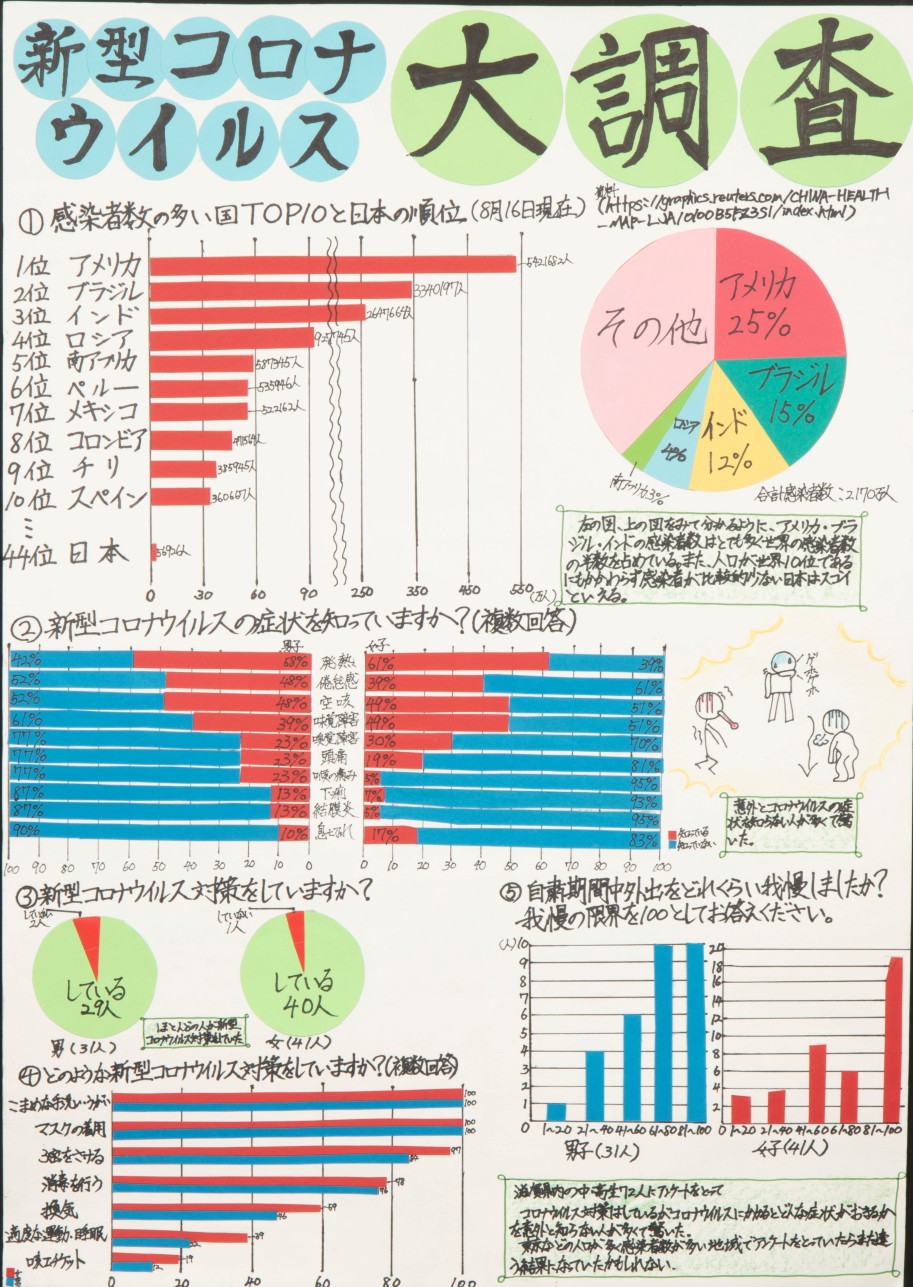 新型コロナ
ウイルス
大調査
①感染者数の多い国TOP10と日本の順位(8月16日現在)
資料
(https://graphics.reuters.com/CHINA-HEALTH
-MAP-LJA/0100B5FZ3S1/index.html)
1位 アメリカ
2位 ブラジル 3340197人
3位 インド 2647664人
4位 ロシア
5位 南アフリカ 587345人
6位 ペルー 535946人
7位 メキシコ 522162人
8位 コロンビア
9位 チリ 385945人
10位 スペイン
44位 日本
0 30 60 90 250 350 450 550 (万人)
アメリカ
25%
ブラジル
15%
インド
12%
ロシア
4%
南アフリカ3%
その他
合計感染者数:2170万人
左の図、上の図をみて分かるように、アメリカ・ブラ
ジル・インドの感染者数はとても多く世界の感染者数
の半数を占めている。また、人口が世界10位である
にもかかわらず感染者が比較的少ない日本はスゴイ
といえる。
②新型コロナウイルスの症状を知っていますか?(複数回答)
男子 女子
42% 58% 発熱 61% 39%
52% 48% 倦怠感 39% 61%
52% 48% 空咳 49% 51%
61% 39% 味覚障害 49% 51%
77% 23% 嗅覚障害 30% 70%
77% 23% 頭痛 19% 81%
77% 23% 喉の痛み 5% 95%
87% 13% 下痢 7% 93%
87% 13% 結膜炎 5% 95%
90% 10% 息切れ 17% 83%
100 90 80 70 60 50 40 30 20 10 0
0 10 20 30 40 50 60 70 80 90 100
知っている
知っていない
ゲホゲホ
意外とコロナウイルスの症
状を知らない人が多くて驚
いた。
③新型コロナウイルス対策をしていますか?
していない
2人
している
29人
男(31人)
していない
1人
している
40人
女(41人)
ほとんどの人が新型
コロナウイルス対策をしていた
④どのような新型コロナウイルス対策をしていますか?(複数回答)
こまめな手洗いうがい 100 100
マスクの着用 100 100
3密をさける 97
消毒を行う 78 76
換気 59 46
適度な運動、睡眠 39 22
咳エチケット 19 12
0 20 40 60 80 100
⑤自粛期間中外出をどれくらい我慢しましたか?
我慢の限界を100としてお答えください。
(人)10
9
8
7
6
5
4
3
2
1
0 1~20 21~40 41~60 61~80 81~100
男子(31人)
20
18
16
14
12
10
8
6
4
2
0 1~20 21~40 41~60 61~80 81~100
女子(41人)
滋賀県内の中高生72人にアンケートをとって
コロナウイルス対策はしているがコロナウイルスにかかるとどんな症状がおきるか
を意外と知らない人が多くて驚いた。
東京などの人口が多く感染者数が多い地域でアンケートをとっていたらまた違
う結果になっていたかもしれない。